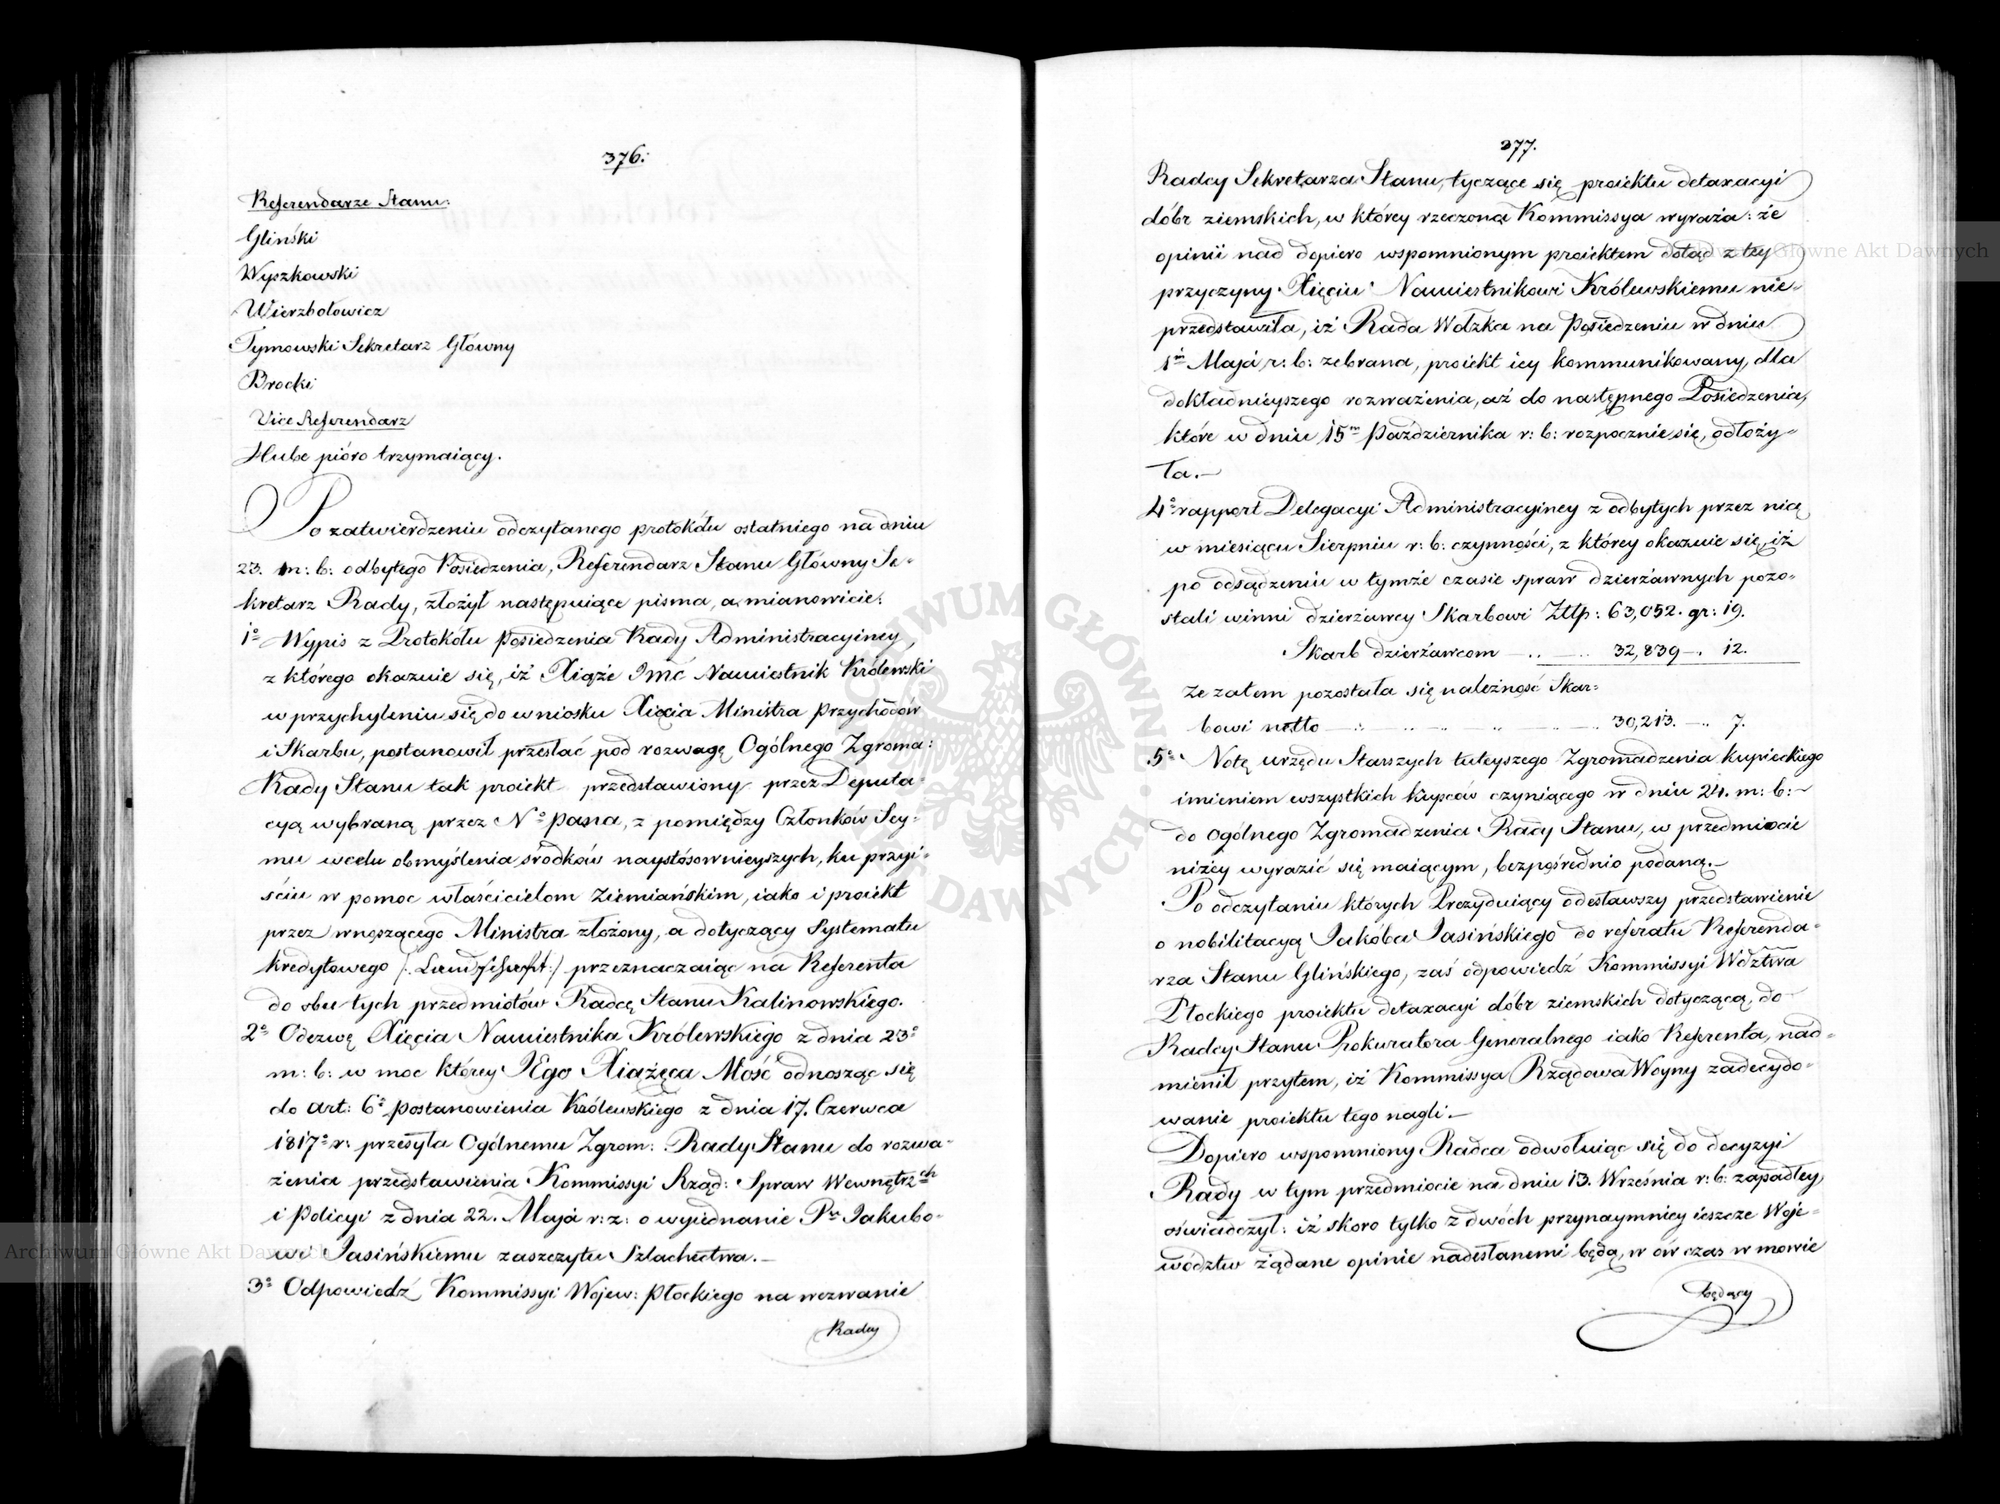 376.
Referendarze Stanu.
Gliński
Wyszkowski
Wierzbołowicz
Tymowski Sekretarz Główny
Brocki
Vice Referendarz
Hube pióro trzymaiący.
Po zatwierdzeniu odczytanego protokółu ostatniego na dniu
23. m: b: odbytego Posiedzenia, Referendarz Stanu Główny Se-
kretarz Rady, złożył następuiące pisma, a mianowicie:
1o Wypis z Protokółu Posiedzenia Rady Administracyiney,
z którego okazuie się, iż Xiąże Jmć Namiestnik Królewski
w przychyleniu się do wniosku Xięcia Ministra Przychodów
i Skarbu, postanowił przesłać pod rozwagę Ogólnego Zgroma:
Rady Stanu tak proiekt przedstawiony przez Deputa-
cyą wybraną przez No pana, z pomiędzy Członków Sey-
mu w celu obmyślenia srodków naystósownieyszych, ku przyi-
ściu w pomoc właścicielom Ziemiańskim, iako i proiekt
przez wnoszącego Ministra złożony, a dotyczący Systematu
kredytowego /: Landschaft:/ przeznaczaiąc na Referenta
do obu tych przedmiotów Radcę Stanu Kalinowskiego.
2o Odezwę Xięcia Namiestnika Królewskiego z dnia 23o
m: b: w moc którey JEgo Xiążęca Mość odnosząc się
do art: 6o postanowienia Królewskiego z dnia 17. Czerwca
1817o r: przesyła Ogólnemu Zgrom: Rady Stanu do rozwa-
żenia przedstawienia Kommissyi Rząd: Spraw Wewnętrzch
i Policyi z dnia 22. Maja r: z: o wyiednanie Pu Jakubo-
wi Jasińskiemu zaszczytu Szlachectwa.—
3o Odpowiedź Kommissyi Wojew: Płockiego na wezwanie
Radcy
377.
Radcy Sekretarza Stanu, tyczące się proiektu detaxacyi
dóbr ziemskich, w którey rzeczona Kommissya wyraża: że
opinii nad dopiero wspomnionym proiektem dotąd z tey
przyczyny Xięciu Namiestnikowi Królewskiemu nie-
przedstawiła, iż Rada Wdzka na Posiedzeniu w dniu
1m Maja r: b: zebrana, proiekt iey kommunikowany, dla
dokładnieyszego rozważenia, aż do następnego Posiedzenia,
które w dniu 15m Października r: b: rozpocznie się, odłoży-
ła.—
4o rapport Delegacyi Administracyiney z odbytych przez nią
w miesiącu Sierpniu r: b: czynności, z którey okazuie się, iż
po odsądzeniu w tymże czasie spraw dzierżawnych pozo-
stali winni dzierżawcy Skarbowi Złtp: 63,052. gr: 19.
Skarb dzierżawcom — .. — .. 32,839 — . 12.
Ze zatem pozostała się należność Skar-
bowi netto — .. .. — .. — .. — 30,213. — .. 7.
5o Notę urzędu Starszych tuteyszego Zgromadzenia kupieckiego
imieniem wszystkich kupców czyniącego w dniu 24. m: b:
do Ogólnego Zgromadzenia Rady Stanu, w przedmiocie
niżey wyrazić się maiącym, bezpośrednio podaną.—
Po odczytaniu których Prezyduiący odesławszy przedstawienie
o nobilitacyą Jakóba Jasińskiego do referatu Referenda-
rza Stanu Glińskiego, zaś odpowiedź Kommissyi Wdztwa
Płockiego proiektu detaxacyi dóbr ziemskich dotyczącą, do
Radcy Stanu Prokuratora Generalnego iako Referenta, nad-
mienił przytem, iż Kommissya Rządowa Woyny zadecydo-
wanie proiektu tego nagli.—
Dopiero wspomniony Radca odwołuiąc się do decyzyi
Rady w tym przedmiocie na dniu 13. Września r: b: zapadłey,
oświadczył: iż skoro tylko z dwóch przynaymniey ieszcze Woje-
wództw żądane opinie nadesłanemi będą, w ów czas w mowie
będący
ARCHIWUM GŁÓWNE AKT DAWNYCH
Archiwum Główne Akt Dawnych
Archiwum Główne Akt Dawnych